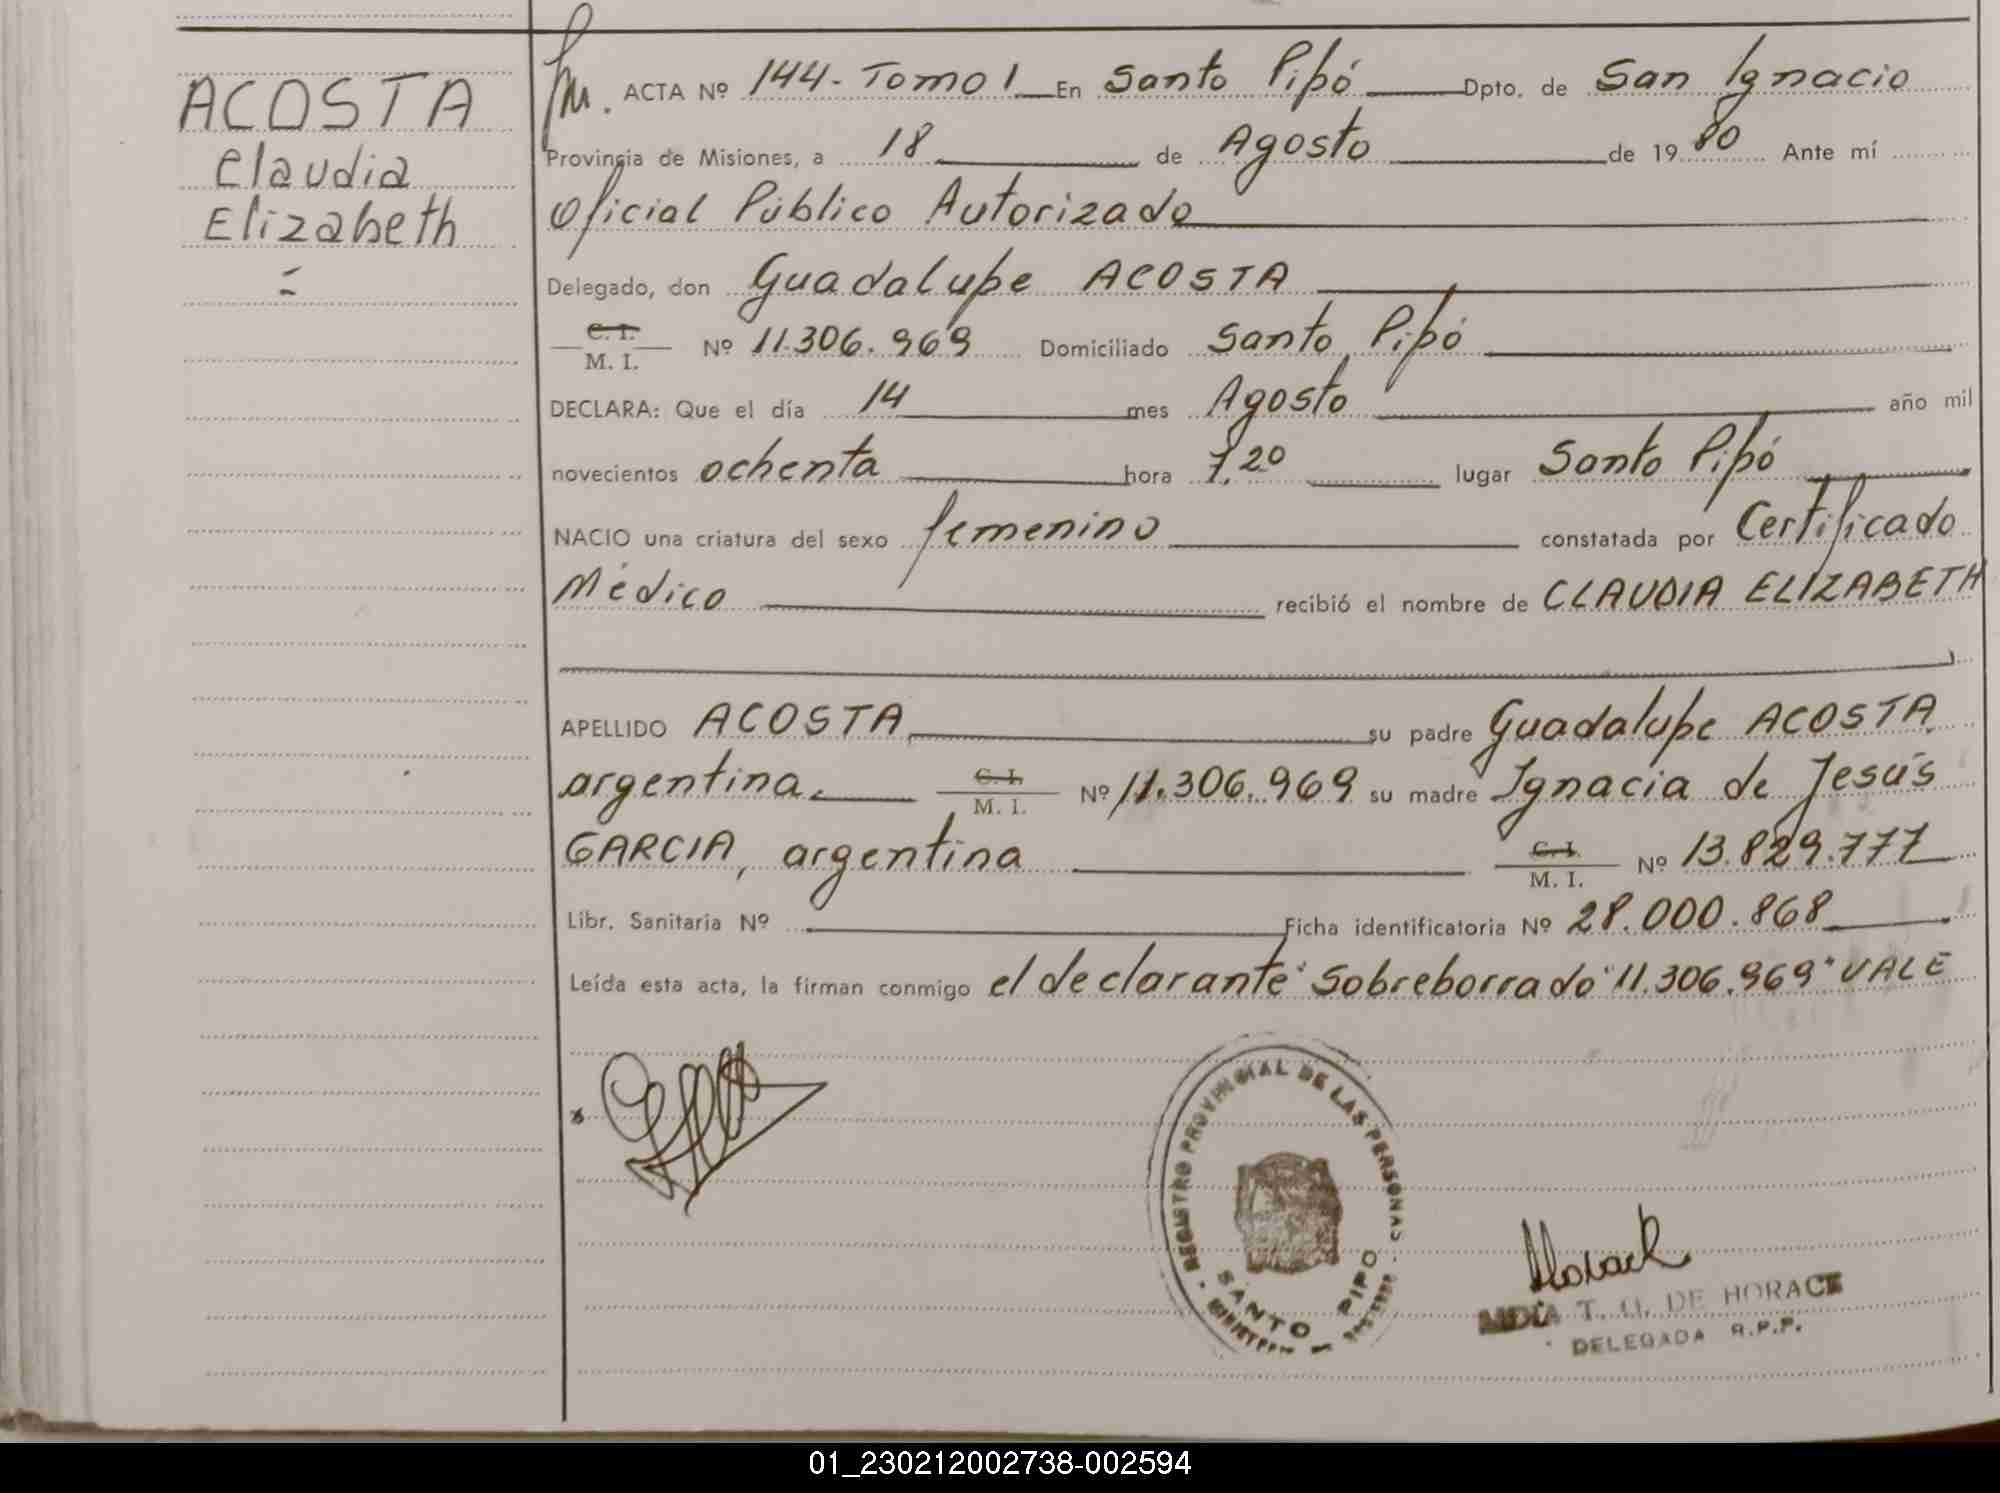 ACOSTA
Claudia
Elizabeth
=
ACTA Nº 144- Tomo I En Santo Pipó Dpto. de San Ignacio
Provincia de Misiones, a 18 de Agosto de 1980 Ante mí
Oficial Público Autorizado
Delegado, don Guadalupe ACOSTA
C. I.
M. I. Nº 11.306.969 Domiciliado Santo Pipó
DECLARA: Que el día 14 mes Agosto año mil
novecientos ochenta hora 7,20 lugar Santo Pipó
NACIO una criatura del sexo femenino constatada por Certificado
Médico recibió el nombre de CLAUDIA ELIZABETH
APELLIDO ACOSTA su padre Guadalupe ACOSTA,
argentina. C. I. M. I. Nº 11.306.969 su madre Ignacia de Jesús
GARCIA, argentina C. I. M. I. Nº 13.829.777
Libr. Sanitaria Nº Ficha identificatoria Nº 28.000.868
Leída esta acta, la firman conmigo el declarante "Sobreborrado "11.306.969" VALE
REGISTRO PROVINCIAL DE LAS PERSONAS
SANTO PIPO
T. DE HORACE
DELEGADA R.P.P.
01_230212002738-002594